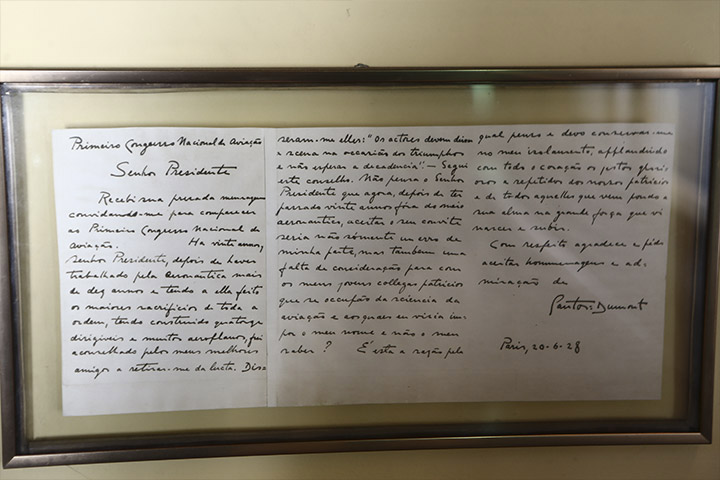 Primeiro Congresso Nacional de Aviação
Senhor Presidente
Recebi sua prezada mensagem
convidando-me para comparecer
ao Primeiro Congresso Nacional de
Aviação. Ha vinte annos,
senhor Presidente, depois de haver
trabalhado pela aeronautica mais
de dez annos e tendo a ella feito
os maiores sacrificios de toda a
ordem, tendo construido quatorze
dirigiveis e muitos aeroplanos, fui
aconselhado pelos meus melhores
amigos a retirar-me da lucta. Dis=
seram-me elles: "Os actores devem deixar
a scena na occasião dos triumphos
e não esperar a decadencia". — Segui
este conselho. Não pensa o Senhor
Presidente que agora, depois de ter
passado vinte annos fóra do meio
aeronautico, aceitar o seu convite
seria não sómente um erro de
minha parte, mas tambem uma
falta de consideração para com
os meus jovens collegas patricios
que se occupão da sciencia da
aviação e aos quaes eu viria im-
por o meu nome e não o meu
saber? É esta a razão pela
qual penso e devo conservar-me
no meu isolamento, applaudindo
com todo o coração os feitos glori-
osos e repetidos dos nossos patricios
e de todos aquelles que veem pondo a
sua alma na grande força que vi
nascer e subir.
Com respeito agradece e pede
aceitar homenagens e ad-
miração de
Santos=Dumont
Paris, 20-6-28